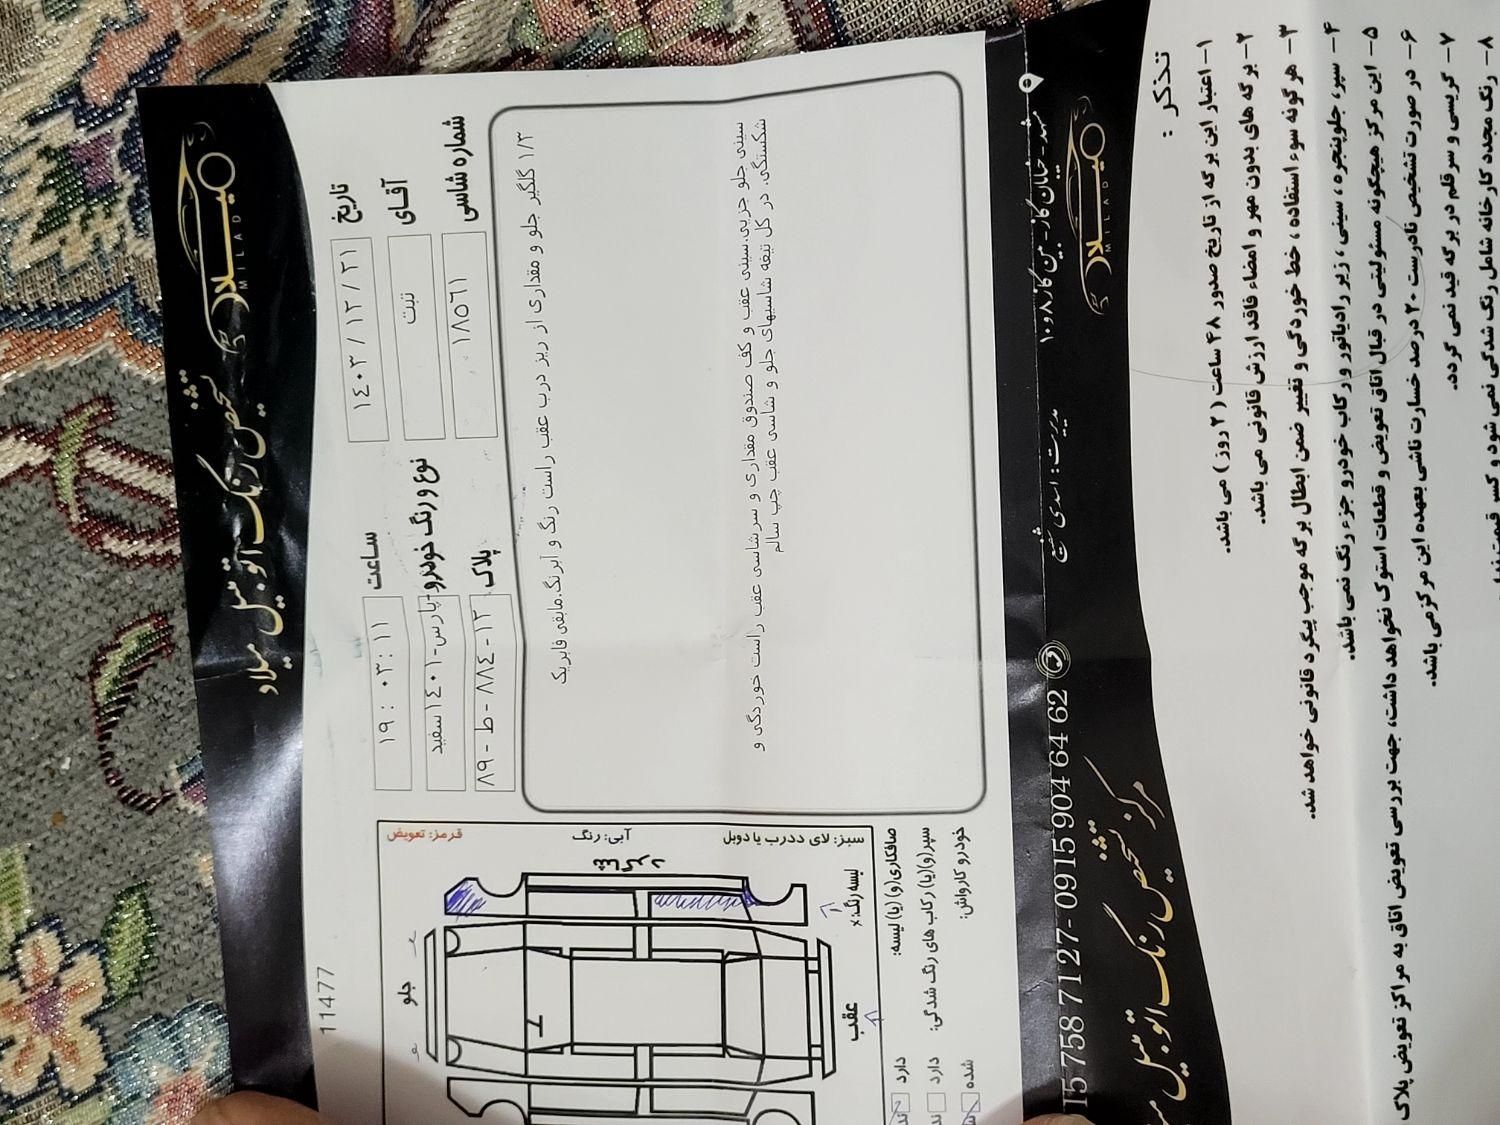 تشخیص رنگ اتومبیل میلاد
میلاد
MILAD
11477
تاریخ
۱٤۰۳ / ۱۲ / ۲۱
ساعت
۱۹ : ۰۳ : ۱۱
آقای
ثبت
نوع و رنگ خودرو
پارس-۱٤۰۱سفید
شماره شاسی
۱۸٥٦۱
پلاک
۸۹ - ط - ۸۸٤ - ۱۲
۱/۳ گلگیر جلو و مقداری از ریز درب عقب راست رنگ و آبرنگ.مابقی فابریک
سینی جلو جزیی.سینی عقب و کف صندوق مقداری و سرشاسی عقب راست خوردگی و
شکستگی. در کل تیغه شاسیهای جلو و شاسی عقب چپ سالم
قرمز: تعویض
آبی: رنگ
سبز: لای ددرب یا دوبل
جلو
عقب
لیسه رنگ: x
صافکاری(و) (یا) لیسه:
دارد
سپر(و)(یا) رکاب های رنگ شدگی:
دارد
خودرو کارواش:
شده
مشهد- خیابان گاز- بین گاز ۸ و ۱۰
مدیریت: اسدی
15 758 71 27- 0915 904 64 62
میلاد
MILAD
مرکز تشخیص رنگ اتومبیل
تذکر :
۱- اعتبار این برگه از تاریخ صدور ۴۸ ساعت ( ۲ روز ) می باشد.
۲- برگه های بدون مهر و امضاء فاقد ارزش قانونی می باشد.
۳- هر گونه سوء استفاده ، خط خوردگی و تغییر ضمن ابطال برگه موجب پیگرد قانونی خواهد شد.
۴- سپر ، جلوپنجره ، سینی ، زیر رادیاتور و رکاب خودرو جزء رنگ نمی باشد.
۵- این مرکز هیچگونه مسئولیتی در قبال اتاق تعویض و قطعات استوک نخواهد داشت، جهت بررسی تعویض اتاق به مراکز تعویض پلاک
۶- در صورت تشخیص نادرست ۲۰ درصد خسارت ناشی بعهده این مرکز می باشد.
۷- گریسی و سر قلم در برگه قید نمی گردد.
۸- رنگ مجدد کارخانه شامل رنگ شدگی نمی شود و کسر قیمت ندارد